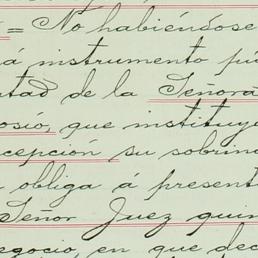 = No habiéndose
á instrumento pú
tad de la Señora
osió, que instituye
cepción su sobrin
obliga á present
Señor Juez quin
egocio, en que dec